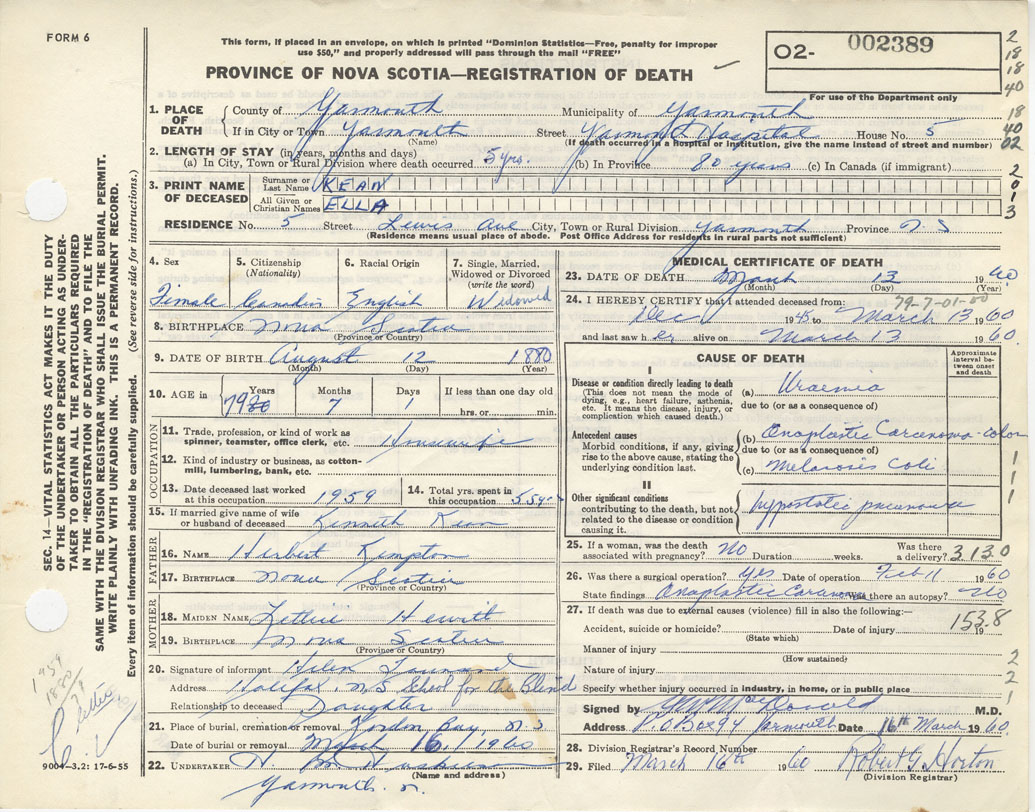 FORM 6
This form, if placed in an envelope, on which is printed "Dominion Statistics—Free, penalty for improper
use $50," and properly addressed will pass through the mail "FREE"
PROVINCE OF NOVA SCOTIA—REGISTRATION OF DEATH
O2- 002389
For use of the Department only
2
18
18
40
18
40
02
2
0
1
3
1. PLACE OF DEATH
County of Yarmouth Municipality of Yarmouth
If in City or Town Yarmouth Street Yarmouth Hospital House No. 5
(Name) (If death occurred in a hospital or institution, give the name instead of street and number)
2. LENGTH OF STAY (in years, months and days)
(a) In City, Town or Rural Division where death occurred 5 yrs. (b) In Province 80 years (c) In Canada (if immigrant)
3. PRINT NAME OF DECEASED
Surname or Last Name KEAN
All Given or Christian Names ELLA
RESIDENCE No. 5 Street Lewis Ave City, Town or Rural Division Yarmouth Province N. S
(Residence means usual place of abode. Post Office Address for residents in rural parts not sufficient)
4. Sex
Female
5. Citizenship
(Nationality)
6. Racial Origin
English
7. Single, Married,
Widowed or Divorced
(write the word)
Widowed
8. BIRTHPLACE Nova Scotia
(Province or Country)
9. DATE OF BIRTH August 12 1880
(Month) (Day) (Year)
10. AGE in
Years Months Days If less than one day old
79 80 7 1 hrs. or min.
OCCUPATION
11. Trade, profession, or kind of work as
spinner, teamster, office clerk, etc. Housewife
12. Kind of industry or business, as cotton-
mill, lumbering, bank, etc.
13. Date deceased last worked
at this occupation 1959
14. Total yrs. spent in
this occupation
15. If married give name of wife
or husband of deceased Kenneth Kean
FATHER
16. NAME Herbert Kempton
17. BIRTHPLACE Nova Scotia
(Province or Country)
MOTHER
18. MAIDEN NAME Hewitt
19. BIRTHPLACE Nova Scotia
(Province or Country)
20. Signature of informant Helen
Address Halifax, N.S School for the Blind
Relationship to deceased Daughter
21. Place of burial, cremation or removal Bay, N.S
Date of burial or removal March 16, 1960
22. UNDERTAKER
(Name and address)
Yarmouth
MEDICAL CERTIFICATE OF DEATH
23. DATE OF DEATH March 13 1960
(Month) (Day) (Year)
24. I HEREBY CERTIFY that I attended deceased from:
79-7-01-00
Dec 1945 to March 13 1960
and last saw her alive on March 13 1960
CAUSE OF DEATH
Approximate
interval between
onset and death
I
Disease or condition directly leading to death
(This does not mean the mode of
dying, e.g., heart failure, asthenia,
etc. It means the disease, injury, or
complication which caused death.)
(a) Uraemia
due to (or as a consequence of)
Antecedent causes
Morbid conditions, if any, giving
rise to the above cause, stating the
underlying condition last.
(b) Anaplastic Carcinoma-colon
due to (or as a consequence of)
(c) Melanosis Coli
II
Other significant conditions
contributing to the death, but not
related to the disease or condition
causing it.
hypostatic pneumonia
1
1
1
25. If a woman, was the death
associated with pregnancy? No Duration weeks. Was there a delivery? 3130
26. Was there a surgical operation? yes Date of operation Feb 11 1960
State findings Anaplastic Carcinoma Was there an autopsy? No
27. If death was due to external causes (violence) fill in also the following:—
153.8
Accident, suicide or homicide? Date of injury 19
(State which)
Manner of injury
(How sustained)
Nature of injury
Specify whether injury occurred in industry, in home, or in public place
2
2
1
Signed by M.D.
Address P.O. Box 94 Yarmouth Date 16th March 1960
28. Division Registrar's Record Number
29. Filed March 16th 1960 Robert G. Horton
(Division Registrar)
SEC. 14—VITAL STATISTICS ACT MAKES IT THE DUTY
OF THE UNDERTAKER OR PERSON ACTING AS UNDER-
TAKER TO OBTAIN ALL THE PARTICULARS REQUIRED
IN THE "REGISTRATION OF DEATH" AND TO FILE THE
SAME WITH THE DIVISION REGISTRAR WHO SHALL ISSUE THE BURIAL PERMIT.
WRITE PLAINLY WITH UNFADING INK. THIS IS A PERMANENT RECORD.
Every item of information should be carefully supplied. (See reverse side for instructions.)
1959
1880
79
9004-3.2: 17-6-55